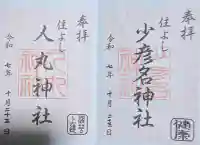 奉拝
住よし
少彦名神社
令和七年十月二十五日
健康
奉拝
住よし
人丸神社
令和七年十月二十五日